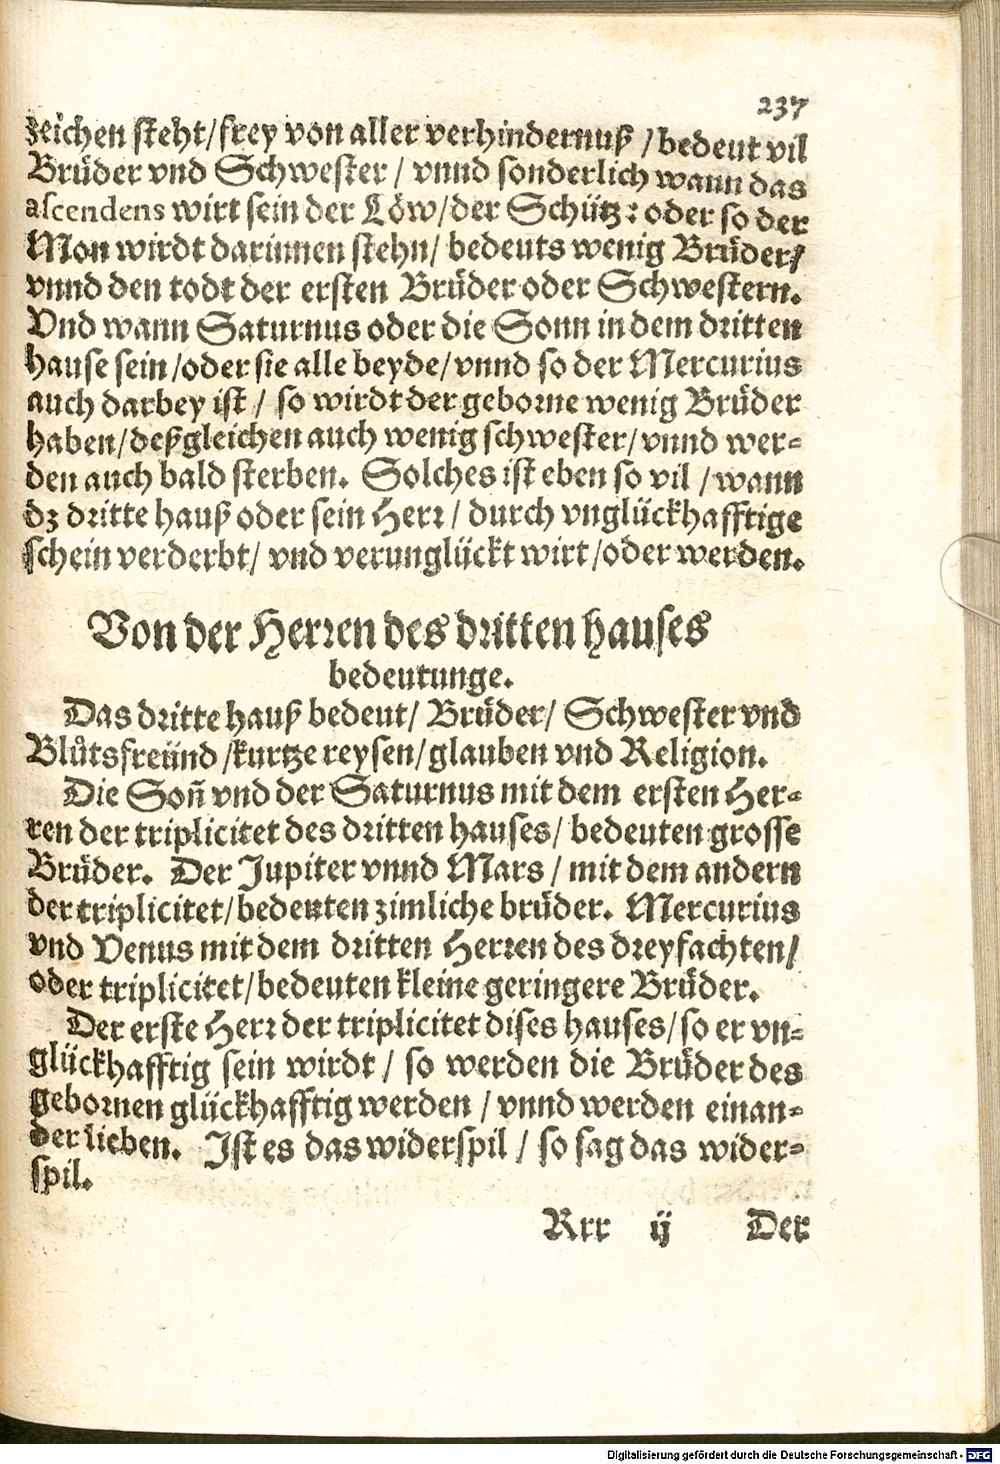 237
zeichen steht/frey von aller verhindernuß/bedeut vil
Brüder vnd Schwester/ vnnd sonderlich wann das
ascendens wirt sein der Löw/der Schütz: oder so der
Mon wirdt darinnen stehn/ bedeuts wenig Brüder/
vnnd den todt der ersten Brüder oder Schwestern.
Vnd wann Saturnus oder die Sonn in dem dritten
hause sein/oder sie alle beyde/vnnd so der Mercurius
auch darbey ist/ so wirdt der geborne wenig Brüder
haben/deßgleichen auch wenig schwester/vnnd wer-
den auch bald sterben. Solches ist eben so vil/wann
dz dritte hauß oder sein Herr/ durch vnglückhafftige
schein verderbt/ vnd verunglückt wirt/oder werden.
Von der Herren des dritten hauses
bedeutunge.
Das dritte hauß bedeut/ Brüder/ Schwester vnd
Blůtsfreünd/kurtze reysen/glauben vnd Religion.
Die Soñ vnd der Saturnus mit dem ersten Her-
ren der triplicitet des dritten hauses/ bedeuten grosse
Brüder. Der Jupiter vnnd Mars/ mit dem andern
der triplicitet/bedeuten zimliche brüder. Mercurius
vnd Venus mit dem dritten Herren des dreyfachten/
oder triplicitet/bedeuten kleine geringere Brüder.
Der erste Herr der triplicitet dises hauses/so er vn-
glückhafftig sein wirdt/ so werden die Brüder des
gebornen glückhafftig werden/vnnd werden einan-
der lieben. Ist es das widerspil/ so sag das wider-
spil.
Rrr ij Der
Digitalisierung gefördert durch die Deutsche Forschungsgemeinschaft - DFG